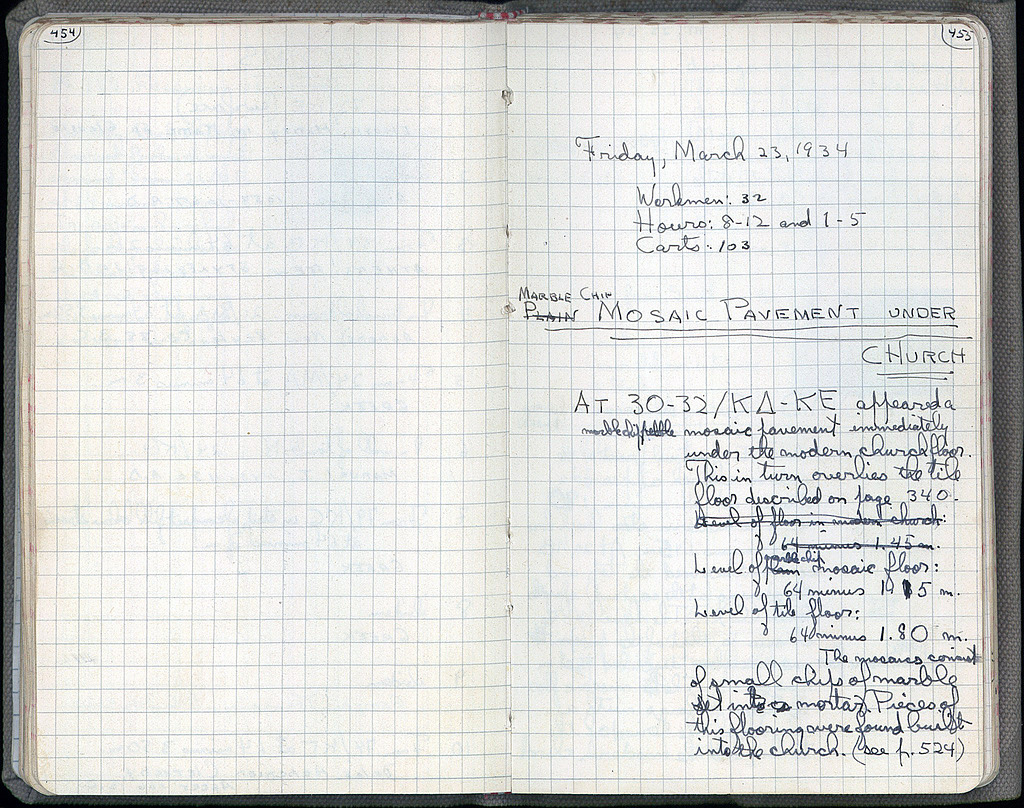 454
455
Friday, March 23, 1934
Workmen: 32
Hours: 8-12 and 1-5
Carts: 103
MARBLE CHIP
PLAIN MOSAIC PAVEMENT UNDER
CHURCH
AT 30-32/ΚΔ-ΚΕ appeared a
marble chip pebble mosaic pavement immediately
under the modern church floor.
This in turn overlies the tile
floor described on page 340.
Level of floor in modern church:
64 minus 1.45 m.
marble chip
Level of plain mosaic floor:
64 minus 1. 5 m.
Level of tile floor:
64 minus 1.80 m.
The mosaics consist
of small chips of marble
set into mortar. Pieces of
this flooring were found built
into the church. (see p. 524)